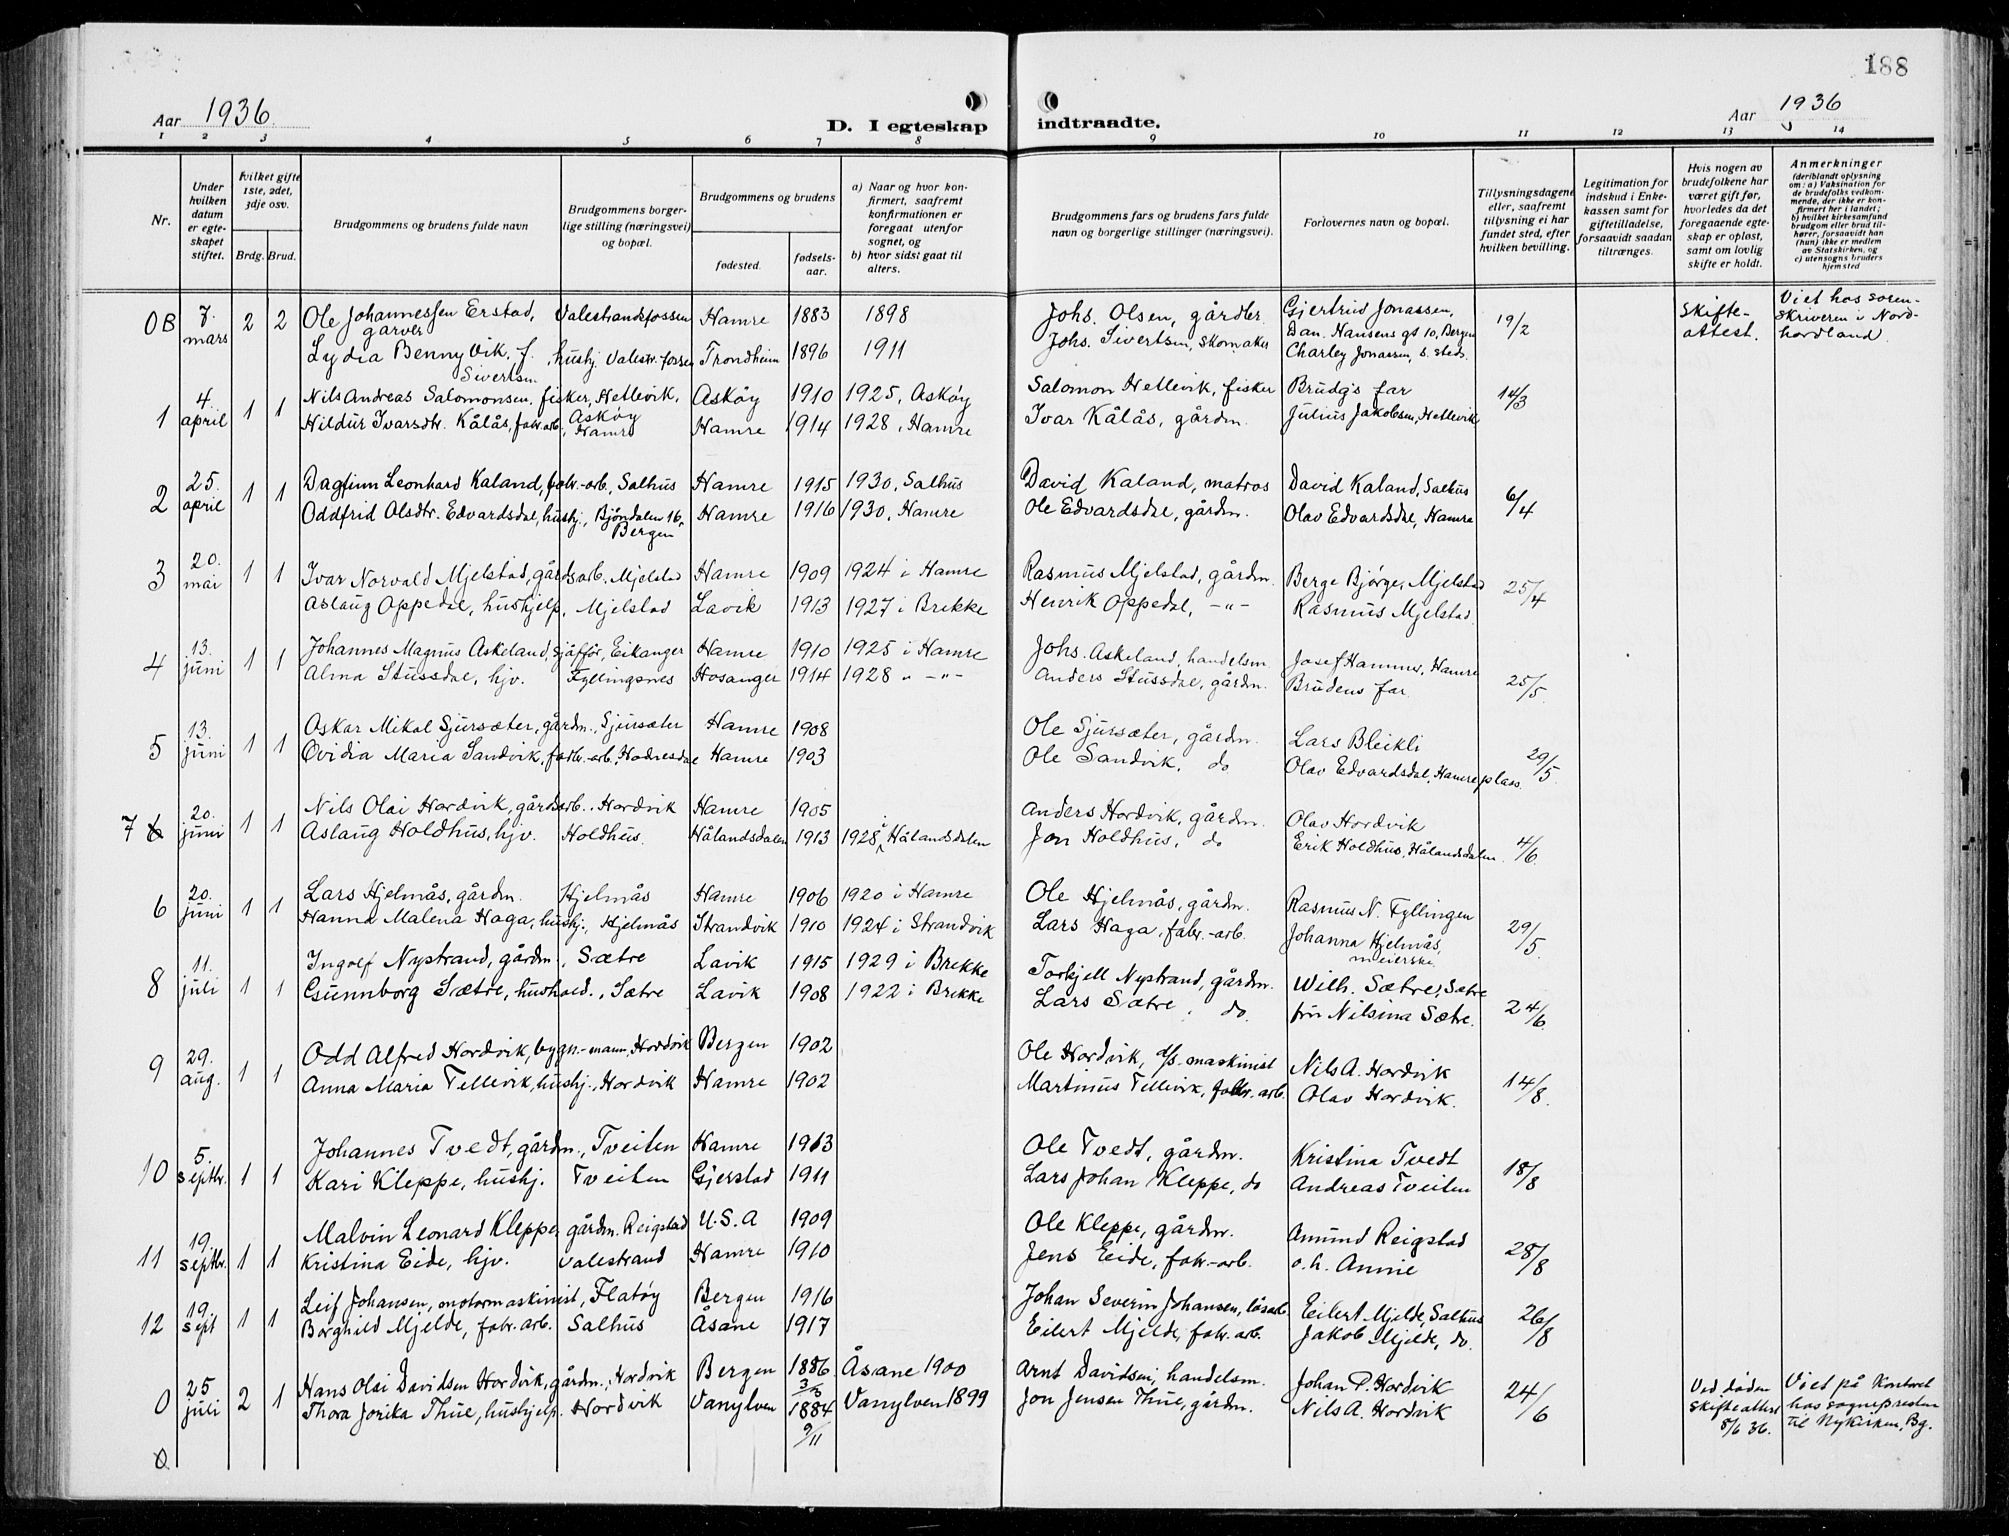 188
Aar 1936
D. I egteskap indtraadte.
Aar 1936
1 2 3 4 5 6 7 8 9 10 11 12 13 14
Nr.
Under hvilken datum er egteskapet stiftet.
Hvilket gifte 1ste, 2det, 3dje osv.
Brdg. Brud.
Brudgommens og brudens fulde navn
Brudgommens borgerlige stilling (næringsvei) og bopæl.
Brudgommens og brudens
fødested.
fødselsaar.
a) Naar og hvor konfirmert, saafremt konfirmationen er foregaat utenfor sognet, og
b) hvor sidst gaat til alters.
Brudgommens fars og brudens fars fulde navn og borgerlige stillinger (næringsvei).
Forlovernes navn og bopæl.
Tillysningsdagene eller, saafremt tillysning ei har fundet sted, efter hvilken bevilling.
Legitimation for indskud i Enkekassen samt for giftetilladelse, forsaavidt saadan tiltrænges.
Hvis nogen av brudefolkene har været gift før, hvorledes da det foregaaende egteskap er opløst, samt om lovlig skifte er holdt.
Anmerkninger (deriblandt oplysning om: a) Vaksination for de brudefolks vedkommende, der ikke er konfirmert her i landet; b) hvilket kirkesamfund brudgom eller brud tilhører, forsaavidt han (hun) ikke er medlem av Statskirken, og c) utensogns bruders hjemsted
0B 7. mars 2 2 Ole Johannessen Erstad, garver Valestrandsfossen Hamre 1883 1898 Johs. Olsen, gårdbr. Gjertrud Jonassen, Dan. Hansens gt 10, Bergen 19/2 Skifteattest. Viet hos sorenskriveren i Nordhordland
Lydia Benny Vik, f. Sivertsen hushj. Valestr.fossen Trondheim 1896 1911 Johs. Sivertsen, skomaker Charley Jonassen, s. steds.
1 4. april 1 1 Nils Andreas Salomonsen, fisker, Hetlevik, Askøy Askøy 1910 1925, Askøy Salomon Hetlevik, fisker Brudg's far 14/3
Hildur Ivarsdtr. Kålås, fabr.arb., Hamre Hamre 1914 1928, Hamre Ivar Kålås, gårdm. Julius Jakobsen, Hetlevik
2 25. april 1 1 Dagfinn Leonhard Kaland, fabr.-arb., Salhus Hamre 1915 1930, Salhus David Kaland, matros David Kaland, Salhus 6/4
Oddfrid Olsdtr. Edvardsdal, hushj., Bjøndalen 16, Bergen Hamre 1916 1930, Hamre Ole Edvardsdal, gårdm. Olav Edvardsdal, Hamre
3 20. mai 1 1 Ivar Norvald Mjelstad, gårdsarb. Mjelstad Hamre 1909 1924 i Hamre Rasmus Mjelstad, gårdm. Berge Bjørge, Mjelstad 25/4
Aslaug Oppedal, hushjelp, Mjelstad Lavik 1913 1927 i Brekke Henrik Oppedal, -"- Rasmus Mjelstad
4 13. juni 1 1 Johannes Magnus Askeland, sjåffør, Eikanger Hamre 1910 1925 i Hamre Johs. Askeland, handelsm. Josef Hammer, Hamre 25/5
Alma Stussdal, hjv. Fyllingsnes Hosanger 1914 1928 " -"- Anders Stussdal, gårdm. Brudens far
5 13. juni 1 1 Oskar Mikal Sjursæter, gårdm., Sjursæter Hamre 1908 Ole Sjursæter, gårdm. Lars Bleikli 29/5
Ovidia Maria Sandvik, fabr.-arb., Hodnesdal Hamre 1903 Ole Sandvik, do Olav Edvardsdal, Hamreplass
7 6 20. juni 1 1 Nils Olai Hordvik, gårdsarb., Hordvik Hamre 1905 Anders Hordvik, gårdm. Olav Hordvik 4/6
Aslaug Holdhus, hjv. Holdhus. Hålandsdalen 1913 1928 i Hålandsdalen Jon Holdhus, do Erik Holdhus, Hålandsdalen
6 20. juni 1 1 Lars Hjelmås, gårdm. Hjelmås Hamre 1906 1920 i Hamre Ole Hjelmås, gårdm. Rasmus N. Fyllingen 29/5
Hanna Malena Haga, hushj., Hjelmås Strandvik 1910 1924 i Strandvik Lars Haga, fabr.-arb. Johanna Hjelmås, meierske
8 11. juli 1 1 Ingolf Nystrand, gårdm., Sætre Lavik 1915 1929 i Brekke Torkjell Nystrand, gårdm. Wilh. Sætre, Sætre 24/6
Gunnborg Sætre, hushold., Sætre Lavik 1908 1922 i Brekke Lars Sætre, do fru Nilsina Sætre.
9 29. aug. 1 1 Odd Alfred Hordvik, bygn.-mann, Hordvik Bergen 1902 Ole Hordvik, d/s. maskinist Nils A. Hordvik 14/8
Anna Maria Tellevik, hushj., Hordvik Hamre 1902 Martinus Tellevik, fabr. arb. Olav Hordvik.
10 5. septbr. 1 1 Johannes Tvedt, gårdm., Tveiten Hamre 1913 Ole Tvedt, gårdm. Kristina Tvedt 18/8
Kari Kleppe, hushj. Tveiten Gjerstad 1911 Lars Johan Kleppe, do Andreas Tveiten
11 19. septbr. 1 1 Malvin Leonard Kleppe, gårdm. Reigstad U.S.A 1909 Ole Kleppe, gårdm. Amund Reigstad 28/8
Kristina Eide, hjv. Valestrand Hamre 1910 Jens Eide, fabr.-arb. o.h. Annie
12 19. sept 1 1 Leif Johansen, motormaskinist, Flatøy Bergen 1916 Johan Severin Johansen, løsarb. Eilert Mjelde, Salhus 26/8
Borghild Mjelde, fabr.arb. Salhus Åsane 1917 Eilert Mjelde, fabr.arb. Jakob Mjelde, do.
0 25 juli 2 1 Hans Olai Davidsen Hordvik, gårdm., Hordvik Bergen 1886 3/5 Åsane 1900 Arnt Davidsen, handelsm. Johan P. Hordvik 24/6 Ved døden skifteattest 8/6 36. Viet på kontoret hos sognepresten til Nykirken, Bg.
Thora Jorika Thue, hushjelp. Hordvik Vanylven 1884 9/11 Vanylven 1899 Jon Jensen Thue, gårdm. Nils A. Hordvik
0.